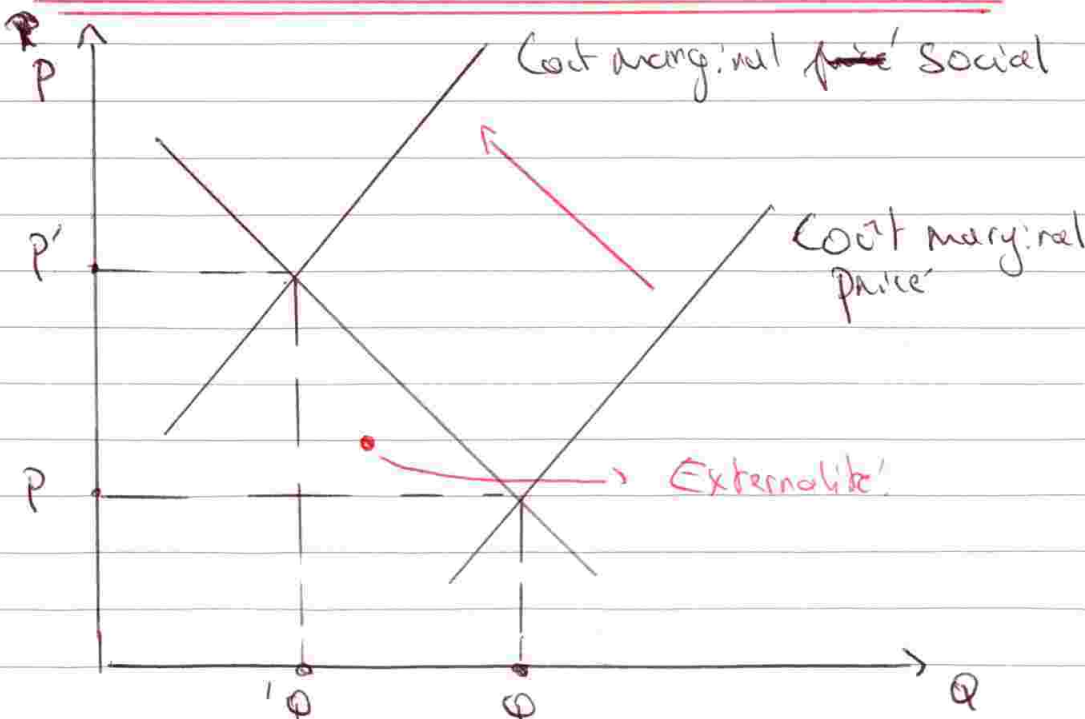 P
Coût marginal privé social
P'
Coût marginal
privé
P
Externalité
'Q
Q
Q